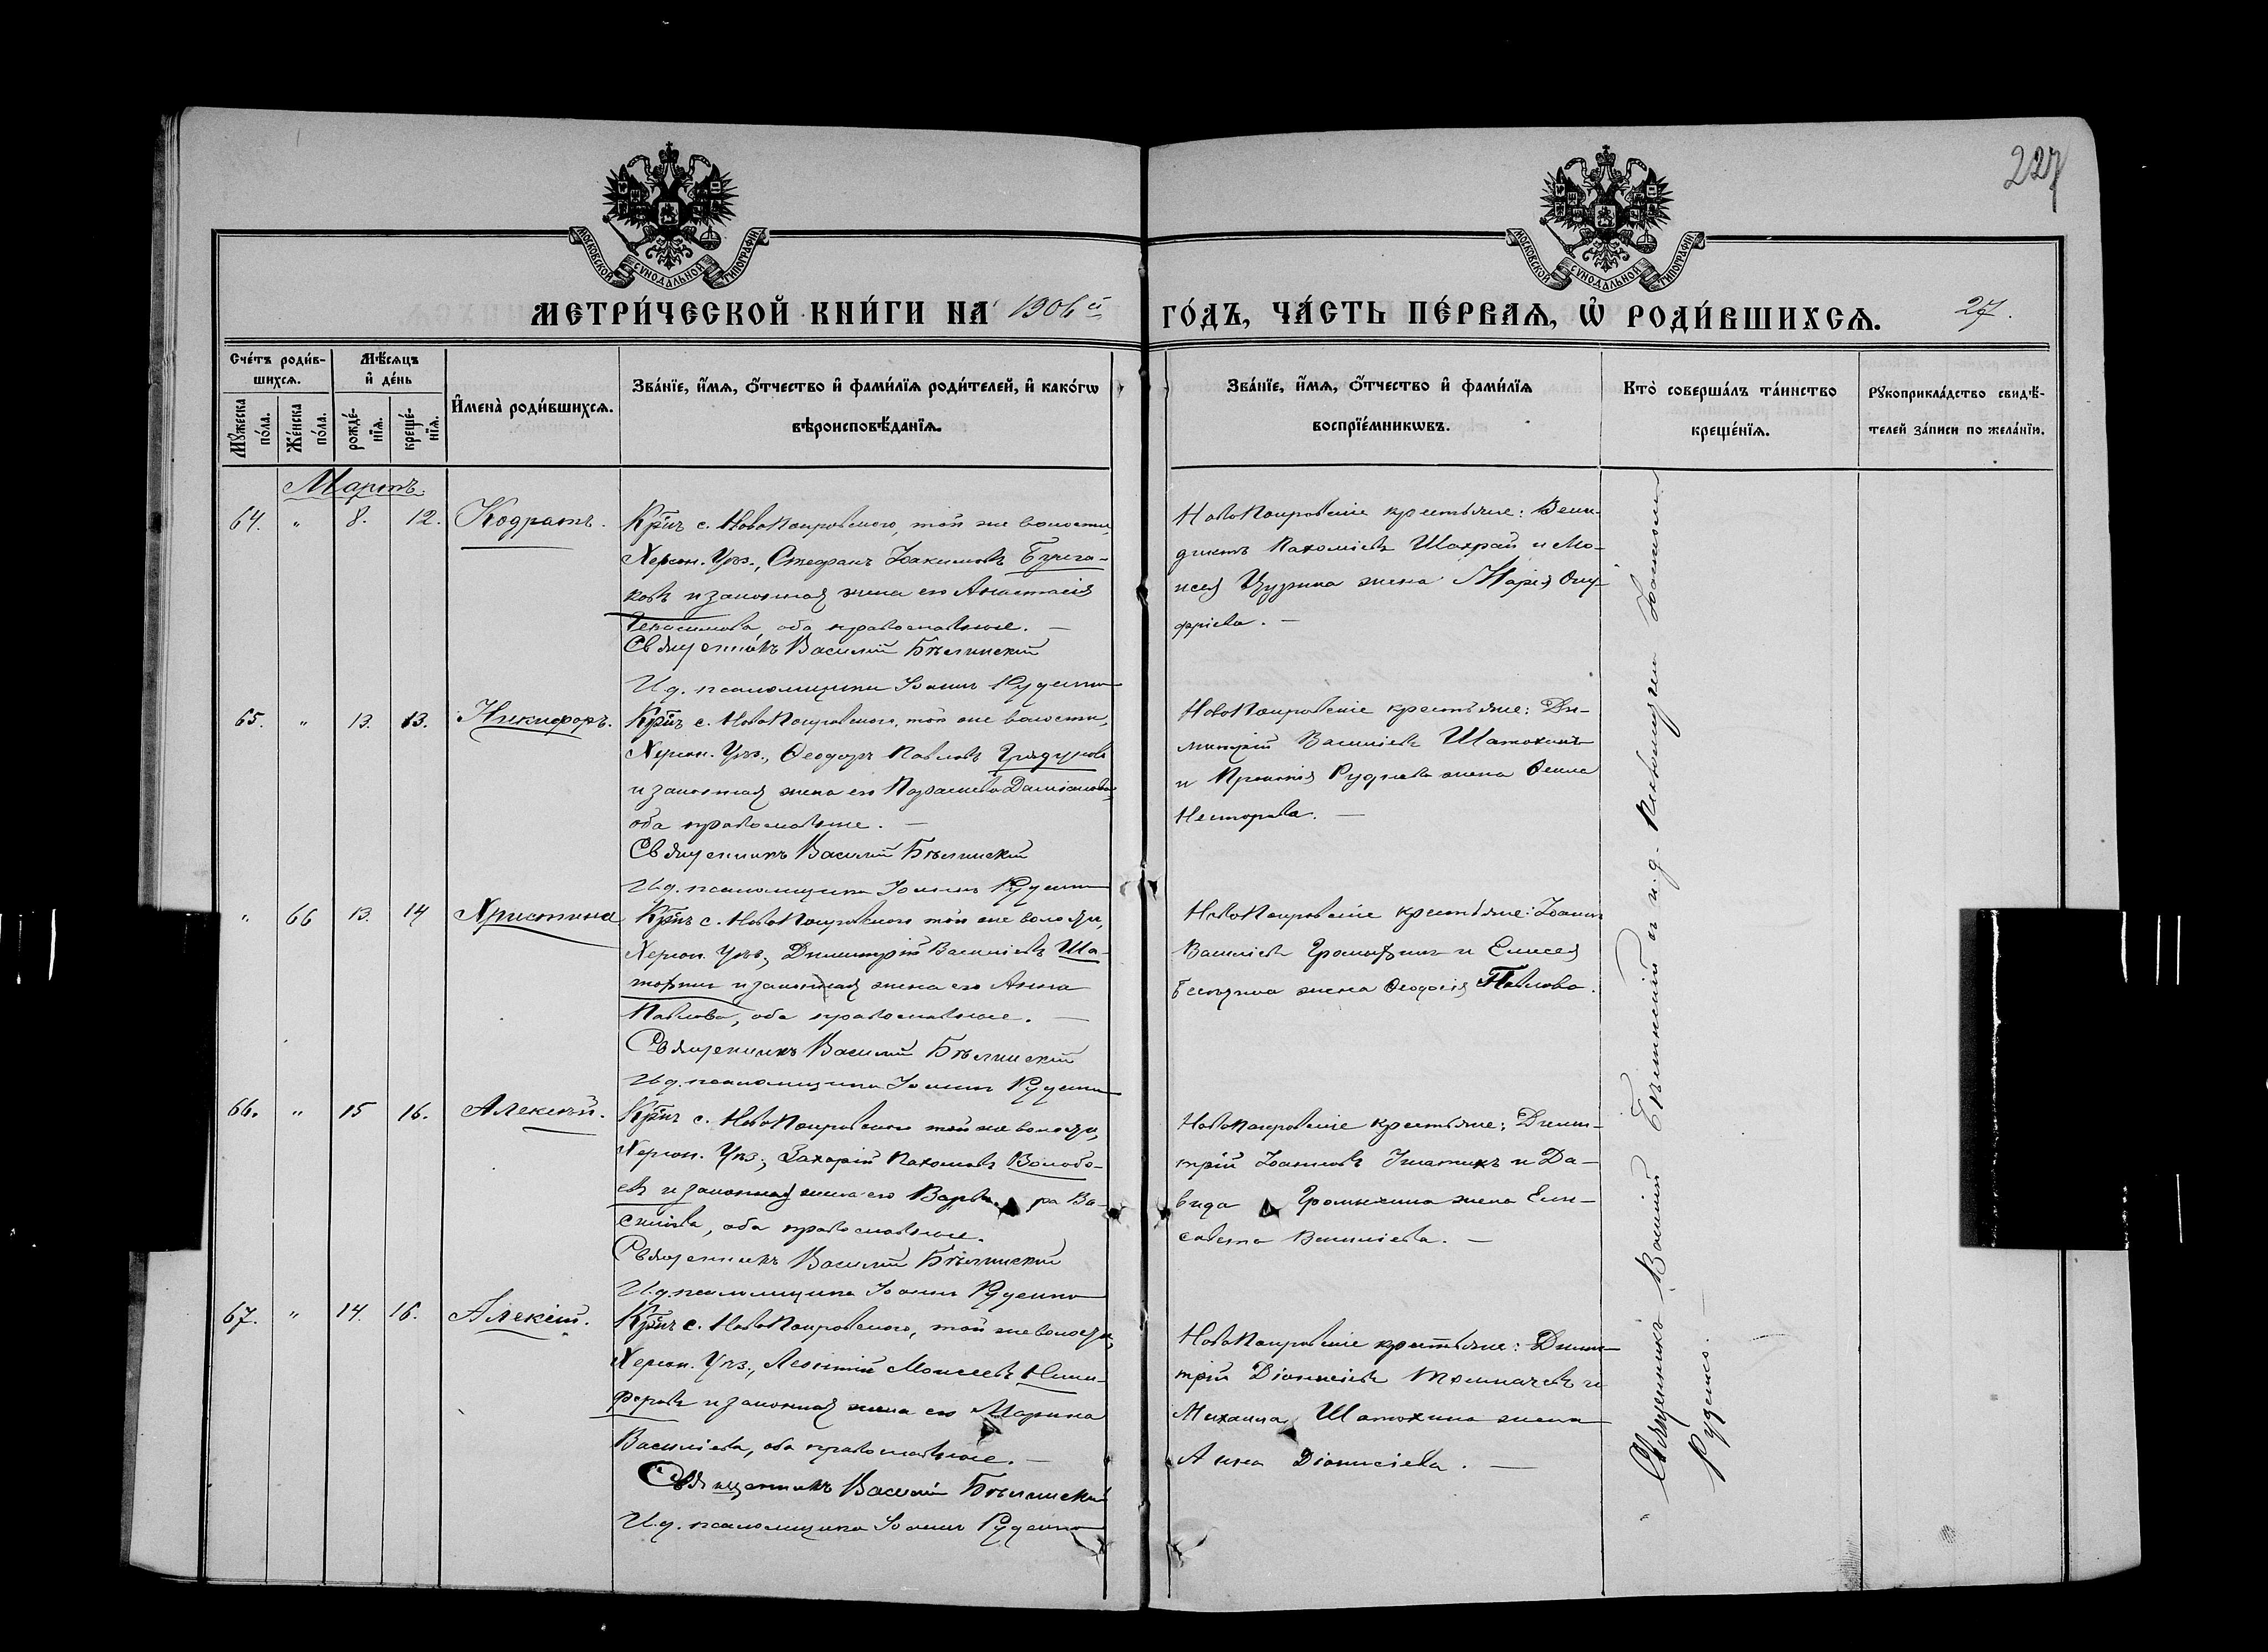 227
МОСКОВСКОЙ СѴНОДАЛЬНОЙ ТИПОГРАФІИ
МОСКОВСКОЙ СѴНОДАЛЬНОЙ ТИПОГРАФІИ
МЕТРИ́ЧЕСКОЙ КНИ́ГИ НА 1906 й
ГО́ДЪ, ЧА́СТЬ ПЕ́РВАѦ, Ѡ҆ РОДИ́ВШИХСѦ. 27.
Сче́тъ роди́в-
шихсѧ.
Мꙋ́жеска по́ла.
Же́нска по́ла.
Мѣ́сѧцъ
и҆ де́нь
рожде́-
нїѧ.
креще́-
нїѧ.
И҆мена̀ роди́вшихсѧ.
Зва́нїе, и҆́мѧ, ѻ҆́тчество и҆ фами́лїѧ роди́телей, и҆ како́гѡ
вѣроисповѣ́данїѧ.
Зва́нїе, и҆́мѧ, ѻ҆́тчество и҆ фами́лїѧ
воспрїе́мникѡвъ.
Кто̀ соверша́лъ та́инство
креще́нїѧ.
Рꙋкоприкла́дство свидѣ́-
телей за́писи по жела́нїю.
Мартъ.
64. " 8. 12. Кодратъ.
Кр-нъ с. НовоПокровскаго, той же волости,
Херсон. Уѣз., Стефанъ Іакимовъ
и законная жена его Анастасія
Герасимова оба православные. —
Священникъ Василій Бѣлинскій
И.д. псаломщика Іоаннъ Руденко
НовоПокровскіе крестьяне: Вени-
диктъ Пахоміевъ Шахрай и Мо-
исея жена Марія Ону-
фріева. —
65. " 13. 13. Никифоръ.
Кр-нъ с. НовоПокровскаго, той же волости,
Херсон. Уѣз., Ѳеодоръ Павловъ
и законная жена его Параскева Даміанова,
оба православные. —
Священникъ Василій Бѣлинскій
И.д. псаломщика Іоаннъ Руденко
НовоПокровскіе крестьяне: Ди-
митрій Василіевъ Шатохинъ
и Руднева жена
Несторова. —
" 66 13. 14 Христина
Кр-нъ с. НовоПокровскаго той же волости,
Херсон. Уѣз., Димитрій Василіевъ Ша-
тохинъ и законная жена его Анна
Павлова, оба православные. —
Священникъ Василій Бѣлинскій
И.д. псаломщика Іоаннъ Руденко
НовоПокровскіе крестьяне: Іоаннъ
Василіевъ Громыхинъ и Елисея
жена Ѳеодосія Павлова.
66. " 15 16. Алексѣй.
Кр-нъ с. НовоПокровскаго той же волости,
Херсон. Уѣз., Захарій Пахомовъ Волобо-
евъ и законная жена его Варва ра Ва-
силіева, оба православные.
Священникъ Василій Бѣлинскій
И.д. псаломщика Іоаннъ Руденко
НовоПокровскіе крестьяне: Дими-
трій Іоанновъ Игнатикъ и Да-
вида Громыхина жена Ели-
савета Василіева. —
67. " 14. 16. Алексій.
Кр-нъ с. НовоПокровскаго, той же волости,
Херсон. Уѣз., Леонтій Моисеевъ Ники-
форовъ и законная жена его Марина
Василіева, оба православные. —
Священникъ Василій Бѣлинскій
И.д. псаломщика Іоаннъ Руденко
НовоПокровскіе крестьяне: Дими-
трій Діонисіевъ Толмачевъ и
Михаила Шатохина жена
Анна Діонисіева. —
Священникъ Василій Бѣлинскій и и.д. псаломщика Іоаннъ
Руденко. —